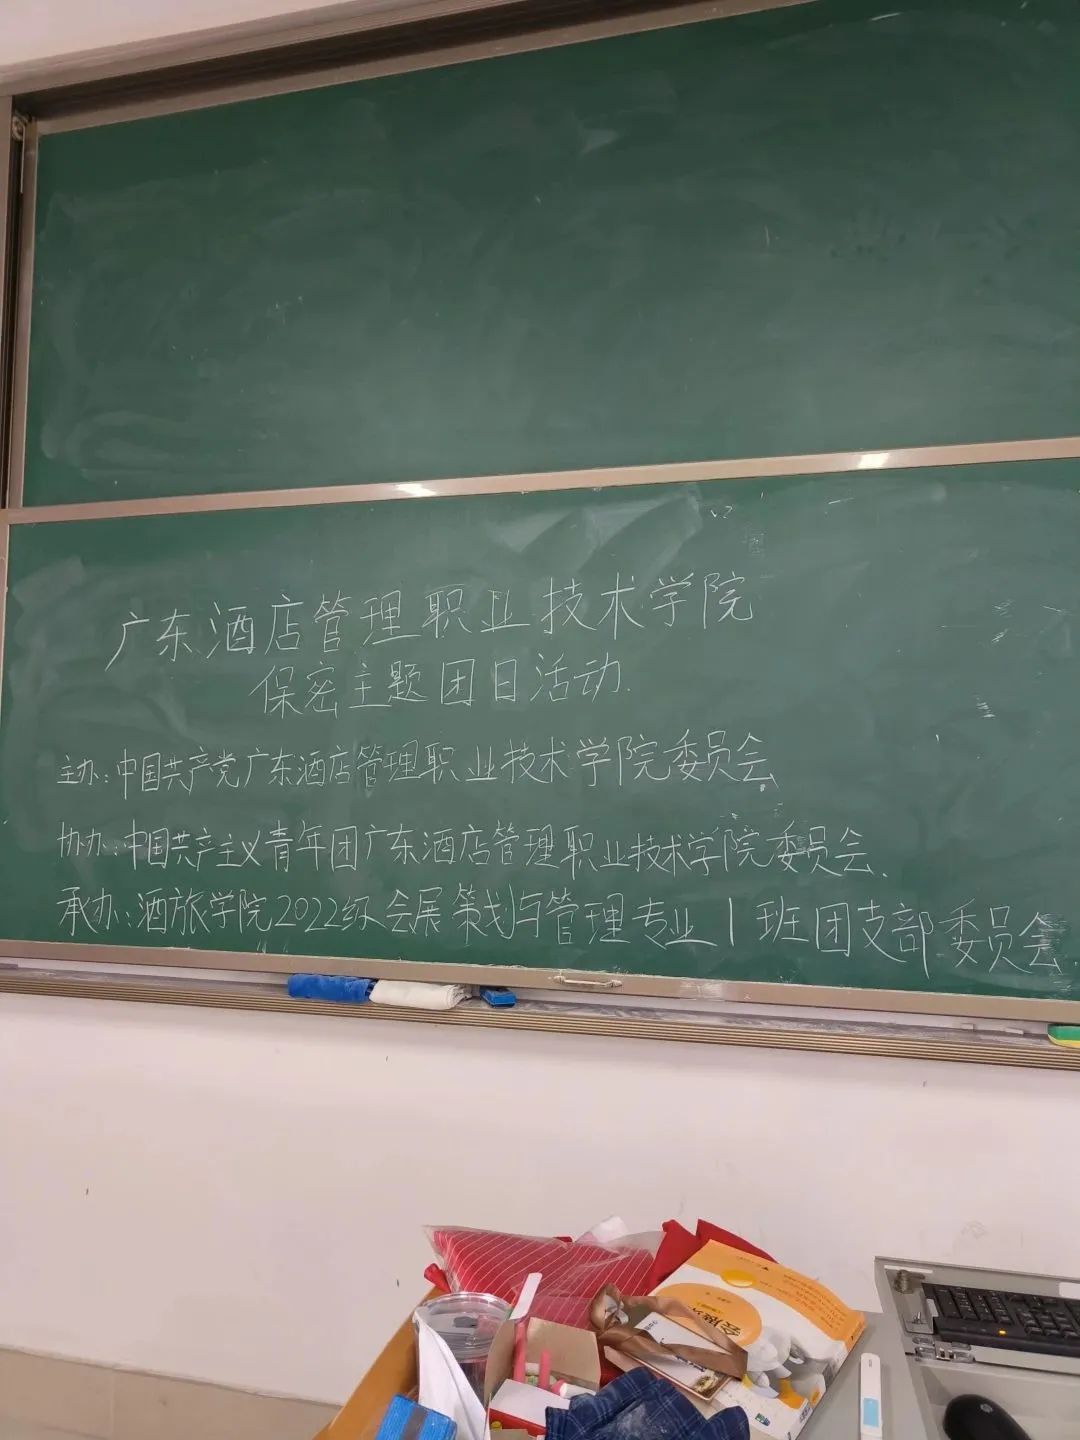 广东酒店管理职业技术学院
保密主题团日活动.
主办:中国共产党广东酒店管理职业技术学院委员会
协办:中国共产主义青年团广东酒店管理职业技术学院委员会.
承办:酒旅学院2022级会展策划与管理专业1班团支部委员会
会展